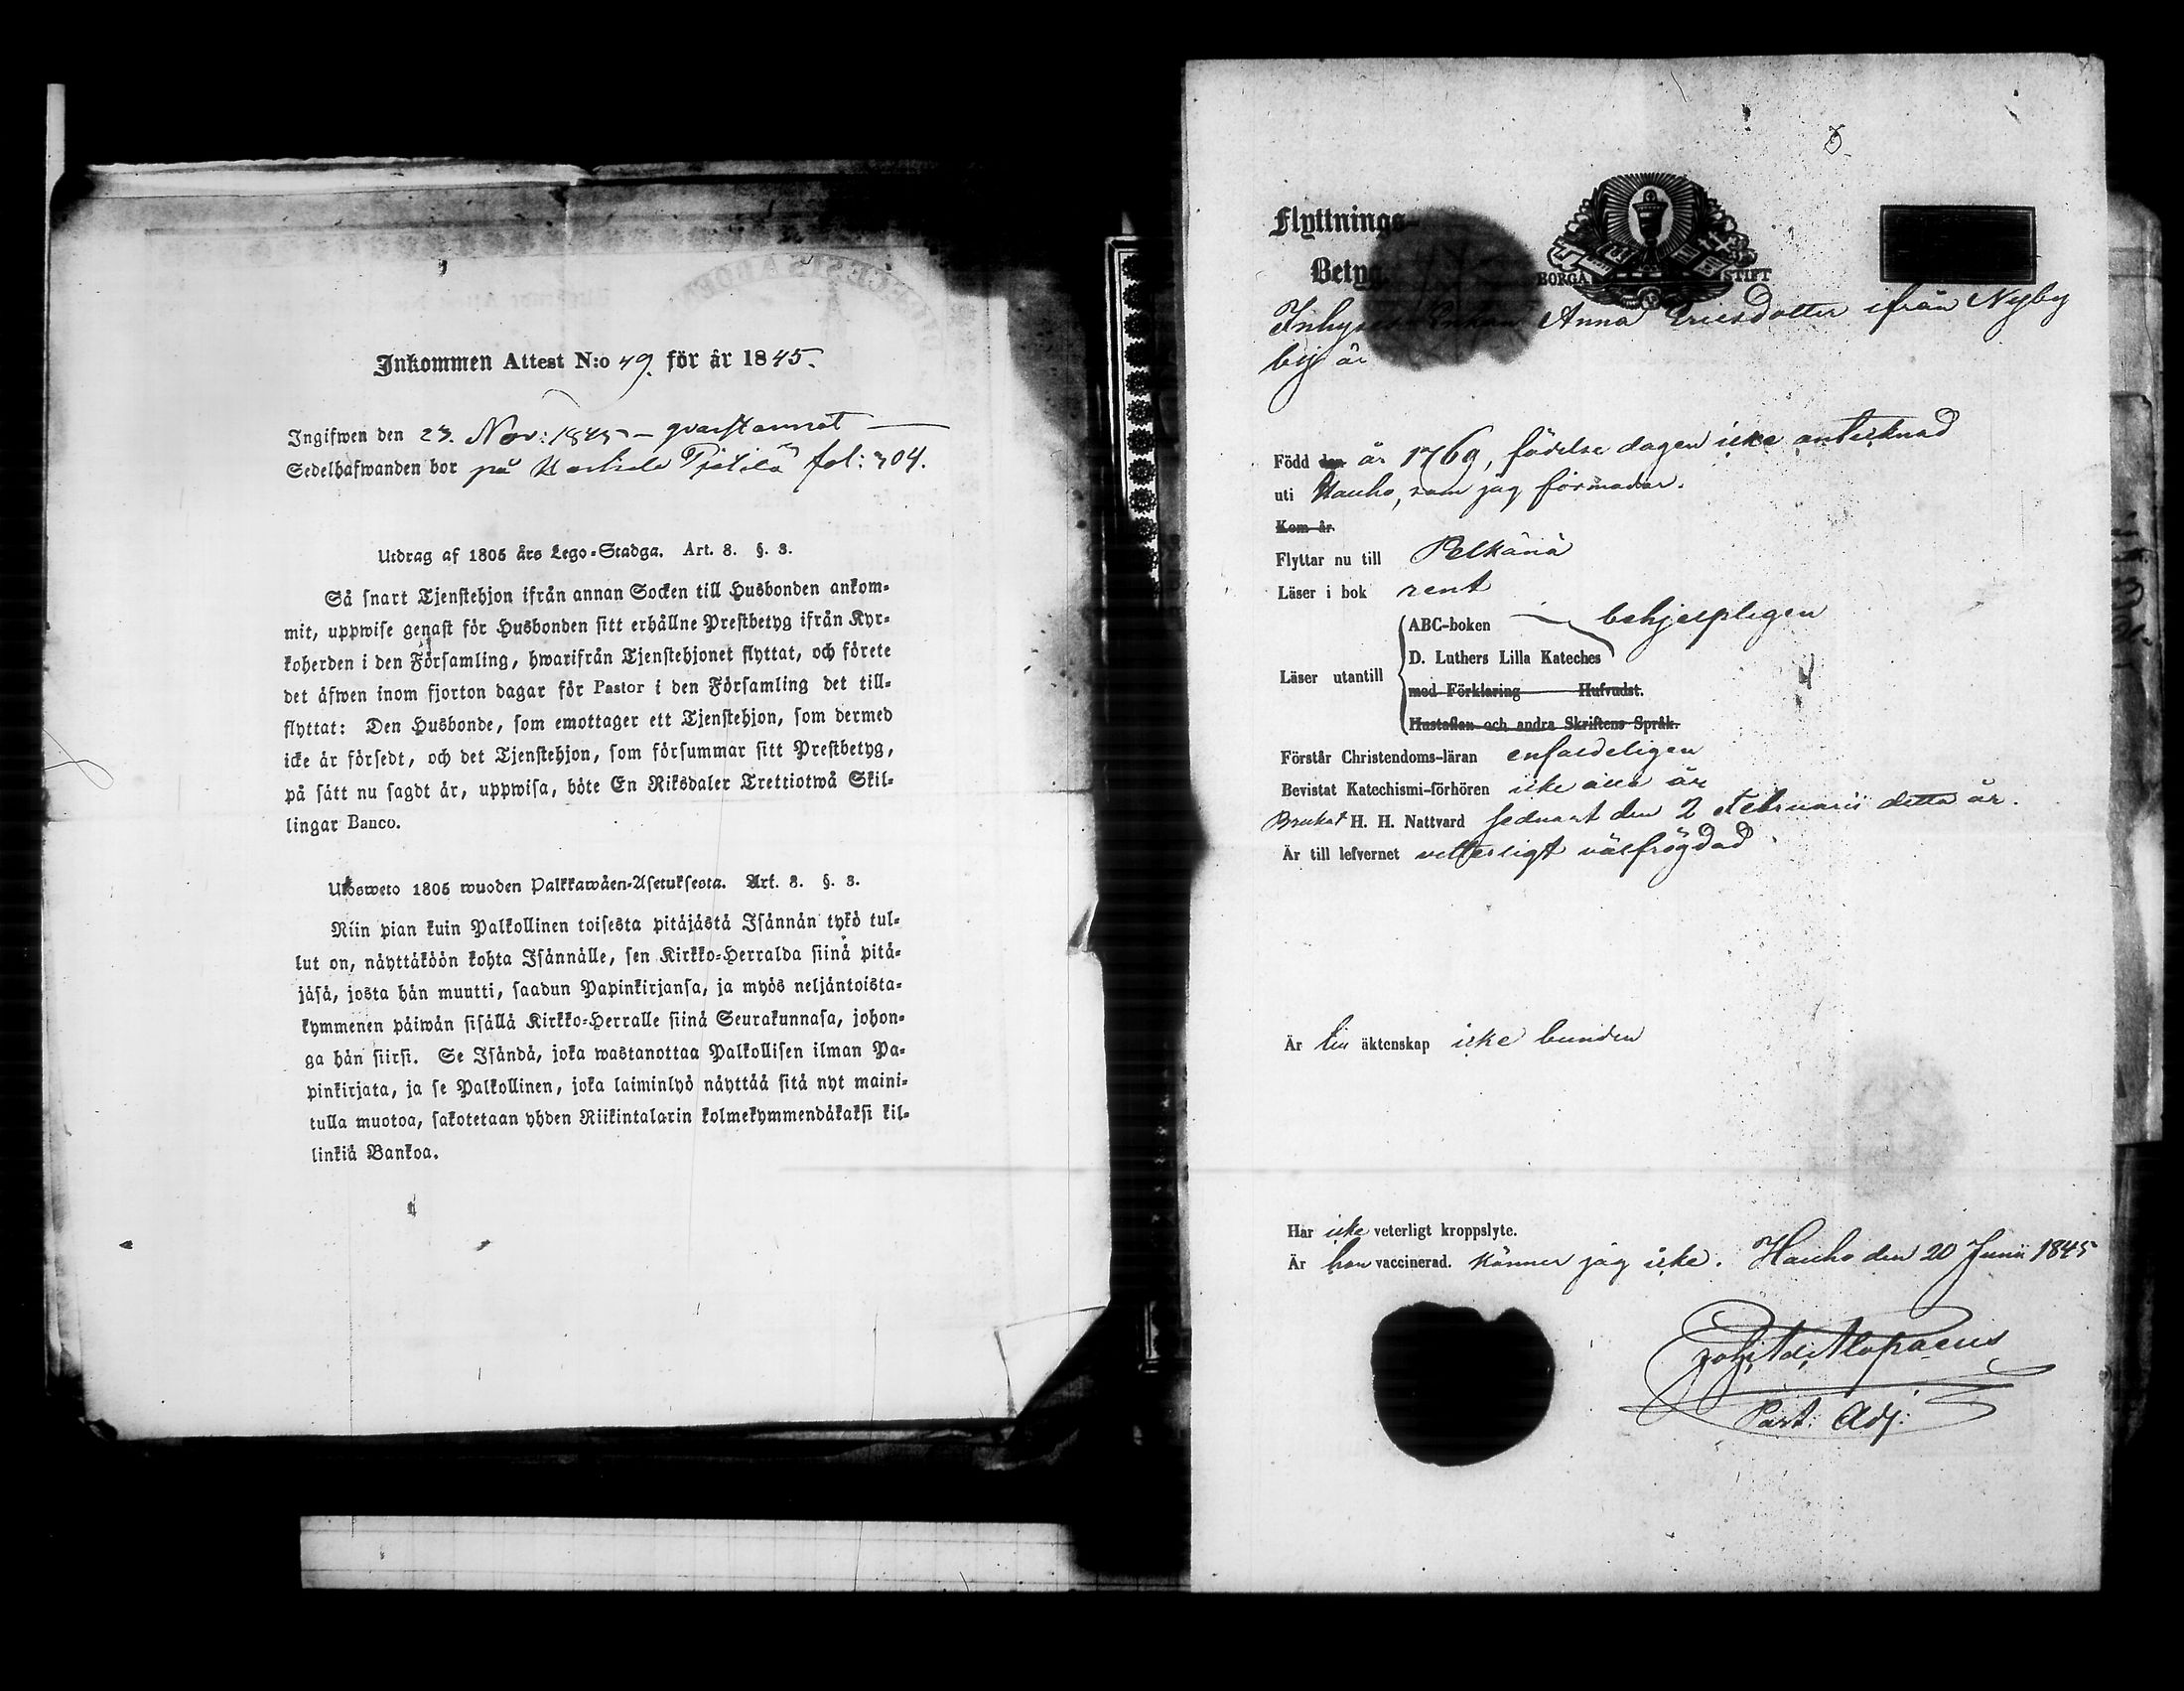 Inkommen Attest N:o 49. för år 1845.
Ingifwen den 23. Nov: 1845 – qvarstannat —
Sedelhafwanden bor på Pietilä fol: 304.
Utdrag af 1805 års Lego-Stadga. Art. 8. §. 3.
Så snart Tjenstehjon ifrån annan Socken till Husbonden ankom-
mit, uppwise genast för Husbonden sitt erhållne Prestbetyg ifrån Kyr-
koherden i den Församling, hwarifrån Tjenstehjonet flyttat, och förete
det äfwen inom fjorton dagar för Pastor i den Församling det till-
flyttat: Den Husbonde, som emottager ett Tjenstehjon, som dermed
icke är försedt, och det Tjenstehjon, som försummar sitt Prestbetyg,
på sätt nu sagdt är, uppwisa, böte En Riksdaler Trettiotwå Skil-
lingar Banco.
Utosweto 1805 wuoden Palkkawäen-Asetuksesta. Art. 8. §. 3.
Niin pian kuin Palkollinen toisesta pitäjästä Isännän tykö tul-
lut on, näyttäköön kohta Isännälle, sen Kirkko-Herralda siinä pitä-
jäsä, josta hän muutti, saadun Papinkirjansa, ja myös neljäntoista-
kymmenen päiwän sisällä Kirkko-Herralle siinä Seurakunnasa, johon-
ga hän siirsi. Se Isändä, joka wastanottaa Palkollisen ilman Pa-
pinkirjata, ja se Palkollinen, joka laiminlyö näyttää sitä nyt maini-
tulla muotoa, sakotetaan yhden Riikintalarin kolmekymmendäkaksi kil-
linkiä Bankoa.
Flyttnings-
Betyg.
BORGÅ STIFT
Inhyses Enkan Anna Ericsdotter ifrån Nyby
by är
Född den år 1769, födelse dagen icke antecknad
uti Hauho, som jag förmodar.
Kom år
Flyttar nu till Pelkänä
Läser i bok rent
ABC-boken behjelpligen
D. Luthers Lilla Kateches
Läser utantill
med Förklaring Hufvudst.
Hustaflan och andra Skriftens Språk.
Förstår Christendoms-läran enfaldeligen
Bevistat Katechismi-förhören icke alla år
Brukat H. H. Nattvard sednast den 2 Februarii detta år.
Är till lefvernet vetterligt välfrägdad
Är till äktenskap icke bunden
Har icke veterligt kroppslyte.
Är hon vaccinerad. känner jag icke. Hauho den 20 Junii 1845
Alopaeus
Past. Adj: